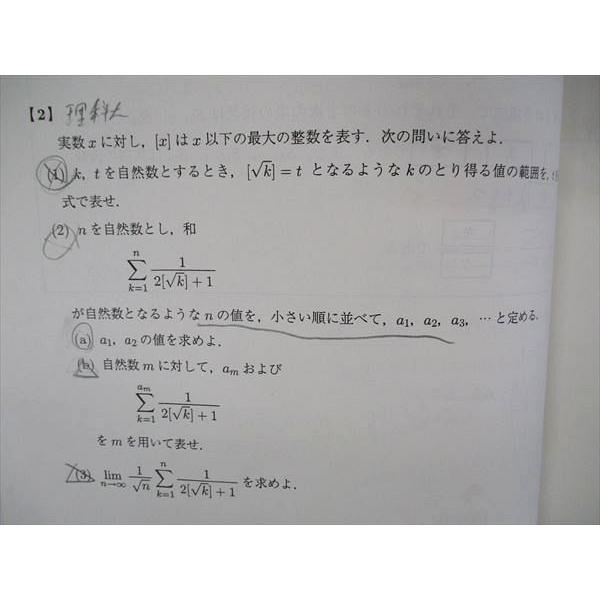 【2】 理科大
実数 x に対し，[x] は x 以下の最大の整数を表す．次の問いに答えよ．
(1) k，t を自然数とするとき，[√k] = t となるような k のとり得る値の範囲を，t
式で表せ．
(2) n を自然数とし，和
\sum_{k=1}^{n} \frac{1}{2[\sqrt{k}]+1}
が自然数となるような n の値を，小さい順に並べて，a₁，a₂，a₃，… と定める．
(a) a₁，a₂ の値を求めよ．
(b) 自然数 m に対して，aₘ および
\sum_{k=1}^{a_m} \frac{1}{2[\sqrt{k}]+1}
を m を用いて表せ．
(3) \lim_{n→∞} \frac{1}{\sqrt{n}} \sum_{k=1}^{n} \frac{1}{2[\sqrt{k}]+1} を求めよ．